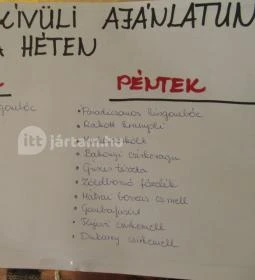 KÍVÜLI AJÁNLATUN
A HÉTEN
PÉNTEK
Paradicsomos húsgombóc
Rakott krumpli
Bakonyi csirkeragu
Gíros tészta
Zöldborsó főzelék
Mátrai borzas cs.mell
Gombafasírt
Dubarry csirkemell
itt jártam.hu